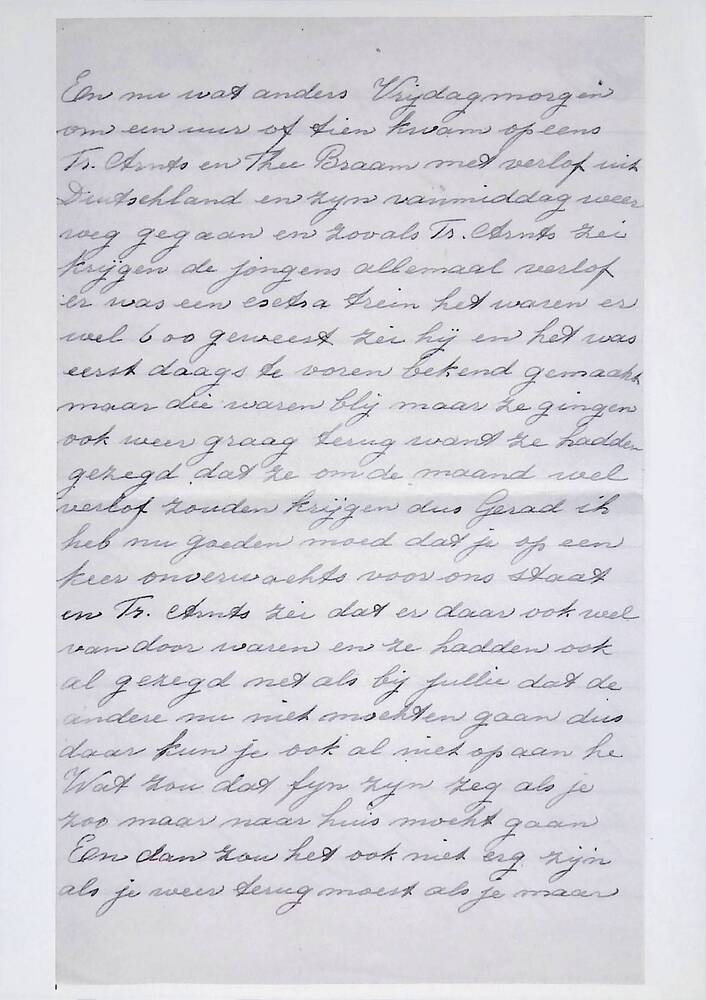 En nu wat anders Vrijdagmorgen
om een uur of tien kwam opeens
Tr. Arnts en Thee Braam met verlof uit
Duutschland en zyn vanmiddag weer
weg gegaan en zovals Tr. Arnts zei
krijgen de jongens allemaal verlof
er was een esetsa trein het waren er
wel 600 geweest zei hij en het was
eerst daags te voren bekend gemaakt
maar die waren blij maar ze gingen
ook weer graag terug want ze hadden
gezegd dat ze om de maand wel
verlof zouden krijgen dus Gerad ik
heb nu goeden moed dat je op een
keer onverwachts voor ons staat
en Tr. Arnts zei dat er daar ook wel
van door waren en ze hadden ook
al gezegd net als bij jullie dat de
andere nu niet mochten gaan dus
daar kun je ook al niet op aan he
Wat zou dat fyn zyn zeg als je
zoo maar naar huis mocht gaan
En dan zou het ook niet erg zijn
als je weer terug moest als je maar